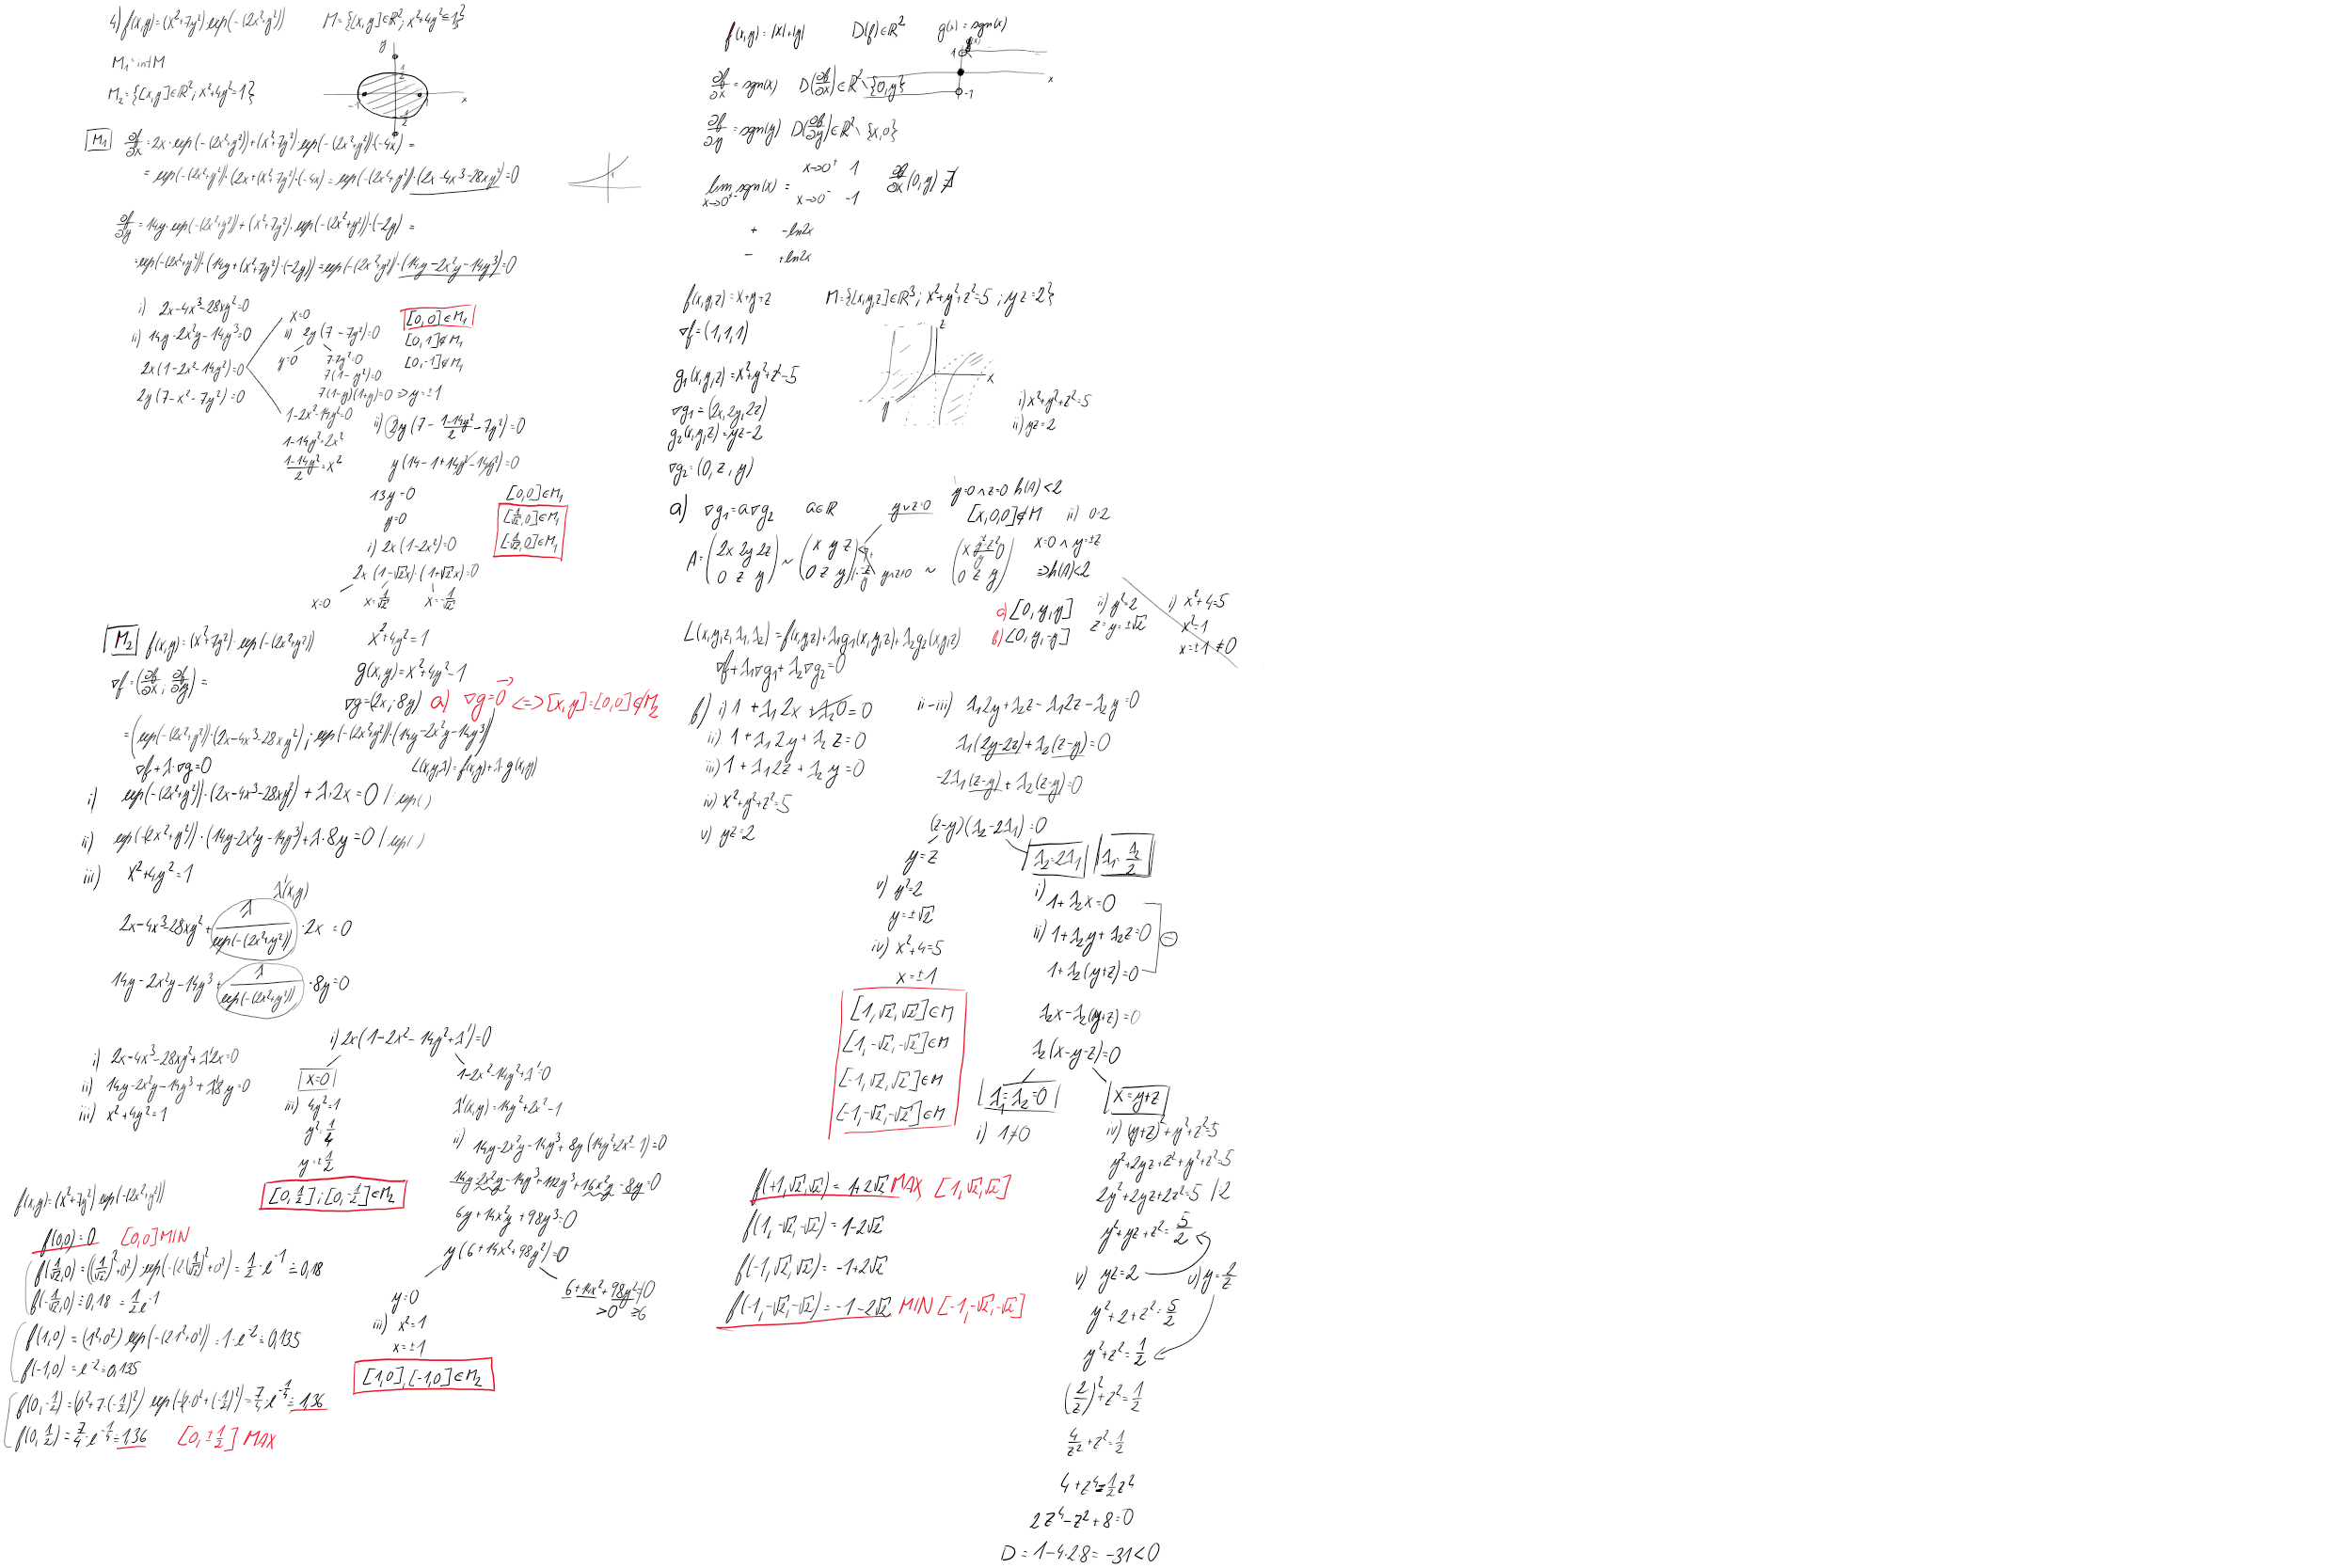 4) f(x,y)=(x²+7y²) exp(-(2x²+y²))   M={[x,y]∈ℝ²; x²+4y²≤1}
M₁=int M
M₂={[x,y]∈ℝ²; x²+4y²=1}
y
1/2
-1   1   x
-1/2
M₁   ∂f/∂x = 2x·exp(-(2x²+y²))+(x²+7y²)·exp(-(2x²+y²))·(-4x) =
= exp(-(2x²+y²))·(2x+(x²+7y²)·(-4x) = exp(-(2x²+y²))·(2x-4x³-28xy²)=0
1
∂f/∂y = 14y·exp(-(2x²+y²))+(x²+7y²)·exp(-(2x²+y²))·(-2y) =
=exp(-(2x²+y²))·(14y+(x²+7y²)·(-2y))=exp(-(2x²+y²))·(14y-2x²y-14y³)=0
i) 2x-4x³-28xy²=0
ii) 14y-2x²y-14y³=0
2x(1-2x²-14y²)=0
2y(7-x²-7y²)=0
x=0
ii) 2y(7-7y²)=0
y=0   7-7y²=0
7(1-y²)=0
7(1-y)(1+y)=0 ⇒ y=±1
[0,0]∈M₁
[0,1]∉M₁
[0,-1]∉M₁
1-2x²-14y²=0
1-14y²=2x²
(1-14y²)/2=x²
ii) 2y(7-(1-14y²)/2-7y²)=0
y(14-1+14y²-14y²)=0
13y=0
y=0
i) 2x(1-2x²)=0
2x(1-√2x)·(1+√2x)=0
x=0   x=1/√2   x=-1/√2
[0,0]∈M₁
[1/√2,0]∈M₁
[-1/√2,0]∈M₁
M₂   f(x,y)=(x²+7y²)·exp(-(2x²+y²))   x²+4y²=1
∇f=(∂f/∂x; ∂f/∂y)=   g(x,y)=x²+4y²-1
∇g=(2x; 8y)   a) ∇g=0⃗ <=> [x,y]=[0,0]∉M₂
=(exp(-(2x²+y²))·(2x-4x³-28xy²); exp(-(2x²+y²))·(14y-2x²y-14y³))
∇f+λ·∇g=0   L(x,y,λ)=f(x,y)+λ·g(x,y)
i) exp(-(2x²+y²))·(2x-4x³-28xy²)+λ·2x=0 /:exp()
ii) exp(-(2x²+y²))·(14y-2x²y-14y³)+λ·8y=0 /:exp()
iii) x²+4y²=1
λ'(x,y)
2x-4x³-28xy²+λ/exp(-(2x²+y²))·2x=0
14y-2x²y-14y³+λ/exp(-(2x²+y²))·8y=0
i) 2x-4x³-28xy²+λ'2x=0
ii) 14y-2x²y-14y³+λ'8y=0
iii) x²+4y²=1
i) 2x(1-2x²-14y²+λ')=0
x=0
iii) 4y²=1
y²=1/4
y=±1/2
[0,1/2];[0,-1/2]∈M₂
1-2x²-14y²+λ'=0
λ'(x,y)=14y²+2x²-1
ii) 14y-2x²y-14y³+8y(14y²+2x²-1)=0
14y-2x²y-14y³+112y³+16x²y-8y=0
6y+14x²y+98y³=0
y(6+14x²+98y²)=0
y=0
iii) x²=1
x=±1
[1,0],[-1,0]∈M₂
6+14x²+98y²≠0
>0   ≥6
f(x,y)=(x²+7y²) exp(-(2x²+y²))
f(0,0)=0   [0,0] MIN
f(1/√2,0)=((1/√2)²+0²)·exp(-(2·(1/√2)²+0²)=1/2·e⁻¹≐0,18
f(-1/√2,0)≐0,18=1/2e⁻¹
f(1,0)=(1²+0²) exp(-(2·1²+0²))=1·e⁻²≐0,135
f(-1,0)=e⁻²≐0,135
f(0,-1/2)=(0²+7·(-1/2)²) exp(-(2·0²+(-1/2)²)=7/4·e^(-1/4)≐1,36
f(0,1/2)=7/4·e^(-1/4)≐1,36   [0,±1/2] MAX
f(x,y)=|x|+|y|   D(f)∈ℝ²   g(x)=sgn(x)
1
x
-1
∂f/∂x=sgn(x)   D(∂f/∂x)∈ℝ²\{0,y}
∂f/∂y=sgn(y)   D(∂f/∂y)∈ℝ²\{x,0}
lim x→0⁺⁻ sgn(x)=   x→0⁺ 1   x→0⁻ -1   ∂f/∂x(0,y) ∄
+   -ln2x
-   +ln2x
f(x,y,z)=x+y+z   M={[x,y,z]∈ℝ³; x²+y²+z²=5; yz=2}
∇f=(1,1,1)
z
x
y
g₁(x,y,z)=x²+y²+z²-5
∇g₁=(2x,2y,2z)
g₂(x,y,z)=yz-2
∇g₂=(0,z,y)
i) x²+y²+z²=5
ii) yz=2
a) ∇g₁=a∇g₂   a∈ℝ   y∨z=0   y=0∧z=0 h(A)<2
[x,0,0]∉M   ii) 0=2
A=(2x 2y 2z / 0 z y) ~ (x y z / 0 z y) |·-z/y   y∧z≠0 ~ (x (y²-z²)/y 0 / 0 z y)
x=0 ∧ y=±z
⇒h(A)<2
a) [0,y,y]   ii) y²=2   i) x²+4=5
z=y=±√2   x²=1
b) [0,y,-y]   x=±1≠0
L(x,y,z,λ₁,λ₂)=f(x,y,z)+λ₁g₁(x,y,z)+λ₂g₂(x,y,z)
∇f+λ₁∇g₁+λ₂∇g₂=0
b) i) 1+λ₁2x+λ₂0=0
ii) 1+λ₁2y+λ₂z=0
iii) 1+λ₁2z+λ₂y=0
iv) x²+y²+z²=5
v) yz=2
ii-iii) λ₁2y+λ₂z-λ₁2z-λ₂y=0
λ₁(2y-2z)+λ₂(z-y)=0
-2λ₁(z-y)+λ₂(z-y)=0
(z-y)(λ₂-2λ₁)=0
y=z
v) y²=2
y=±√2
iv) x²+4=5
x=±1
[1,√2,√2]∈M
[1,-√2,-√2]∈M
[-1,√2,√2]∈M
[-1,-√2,-√2]∈M
λ₂=2λ₁   λ₁=λ₂/2
i) 1+λ₂x=0
ii) 1+λ₂y+λ₂z=0   -
1+λ₂(y+z)=0
λ₂x-λ₂(y+z)=0
λ₂(x-y-z)=0
λ₁=λ₂=0
i) 1≠0
x=y+z
iv) (y+z)²+y²+z²=5
y²+2yz+z²+y²+z²=5
2y²+2yz+2z²=5 /:2
y²+yz+z²=5/2
v) yz=2   v) y=2/z
y²+2+z²=5/2
y²+z²=1/2
(2/z)²+z²=1/2
4/z²+z²=1/2
4+z⁴=1/2z⁴
2z⁴-z²+8=0
D=1-4·2·8=-31<0
f(+1,√2,√2)=1+2√2 MAX [1,√2,√2]
f(1,-√2,-√2)=1-2√2
f(-1,√2,√2)=-1+2√2
f(-1,-√2,-√2)=-1-2√2 MIN [-1,-√2,-√2]